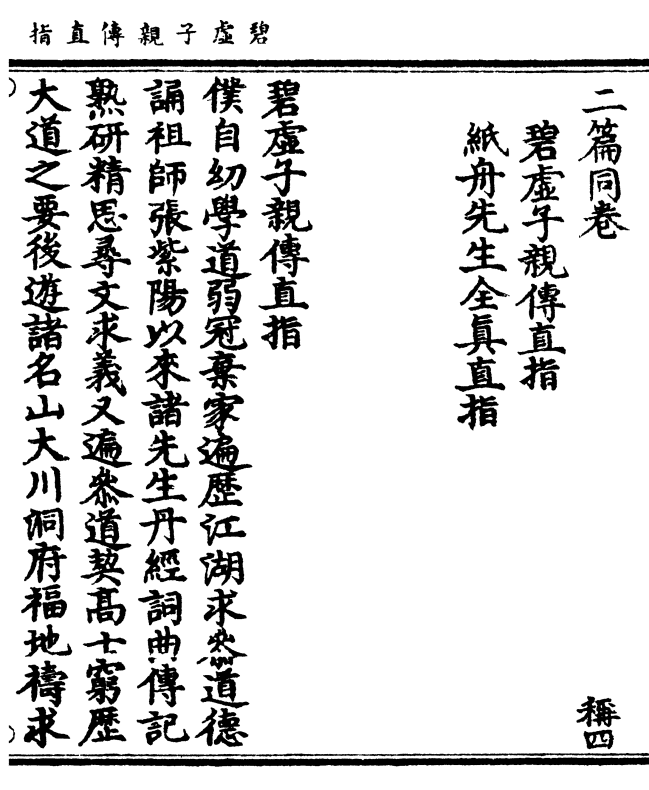 碧虛子親傳直指
二篇同卷　稱四
碧虛子親傳直指
紙舟先生全眞直指
碧虛子親傳直指
僕自幼學道弱冠棄家遍歷江湖求叅道德
誦祖師張紫陽以來諸先生丹經詞曲傳記
熟硏精思尋文求義又遍叅道契高士窮歷
大道之要後遊諸名山大川洞府福地禱求